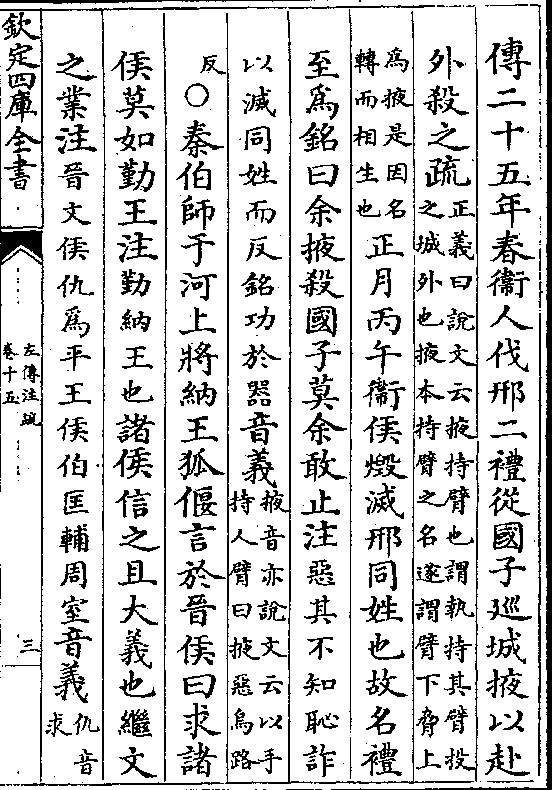 傳二十五年春衞人伐邢二禮從國子廵城掖以赴
外殺之疏正義曰說文云掖持臂也謂執持其臂投
之城外也掖本持臂之名遂謂臂下脅上
爲掖是因名
轉而相生也正月丙午衞侯燬滅邢同姓也故名禮
至爲銘曰余掖殺國子莫余敢止注惡其不知恥詐
以滅同姓而反銘功於器音義掖音亦說文云以手
持人臂曰掖惡烏路
反○秦伯師于河上將納王狐偃言於晉侯曰求諸
侯莫如勤王注勤納王也諸侯信之且大義也繼文
之業注晉文侯仇爲平王侯伯匡輔周室音義仇音
求
欽定四庫全書
左傳注疏
卷十五
三